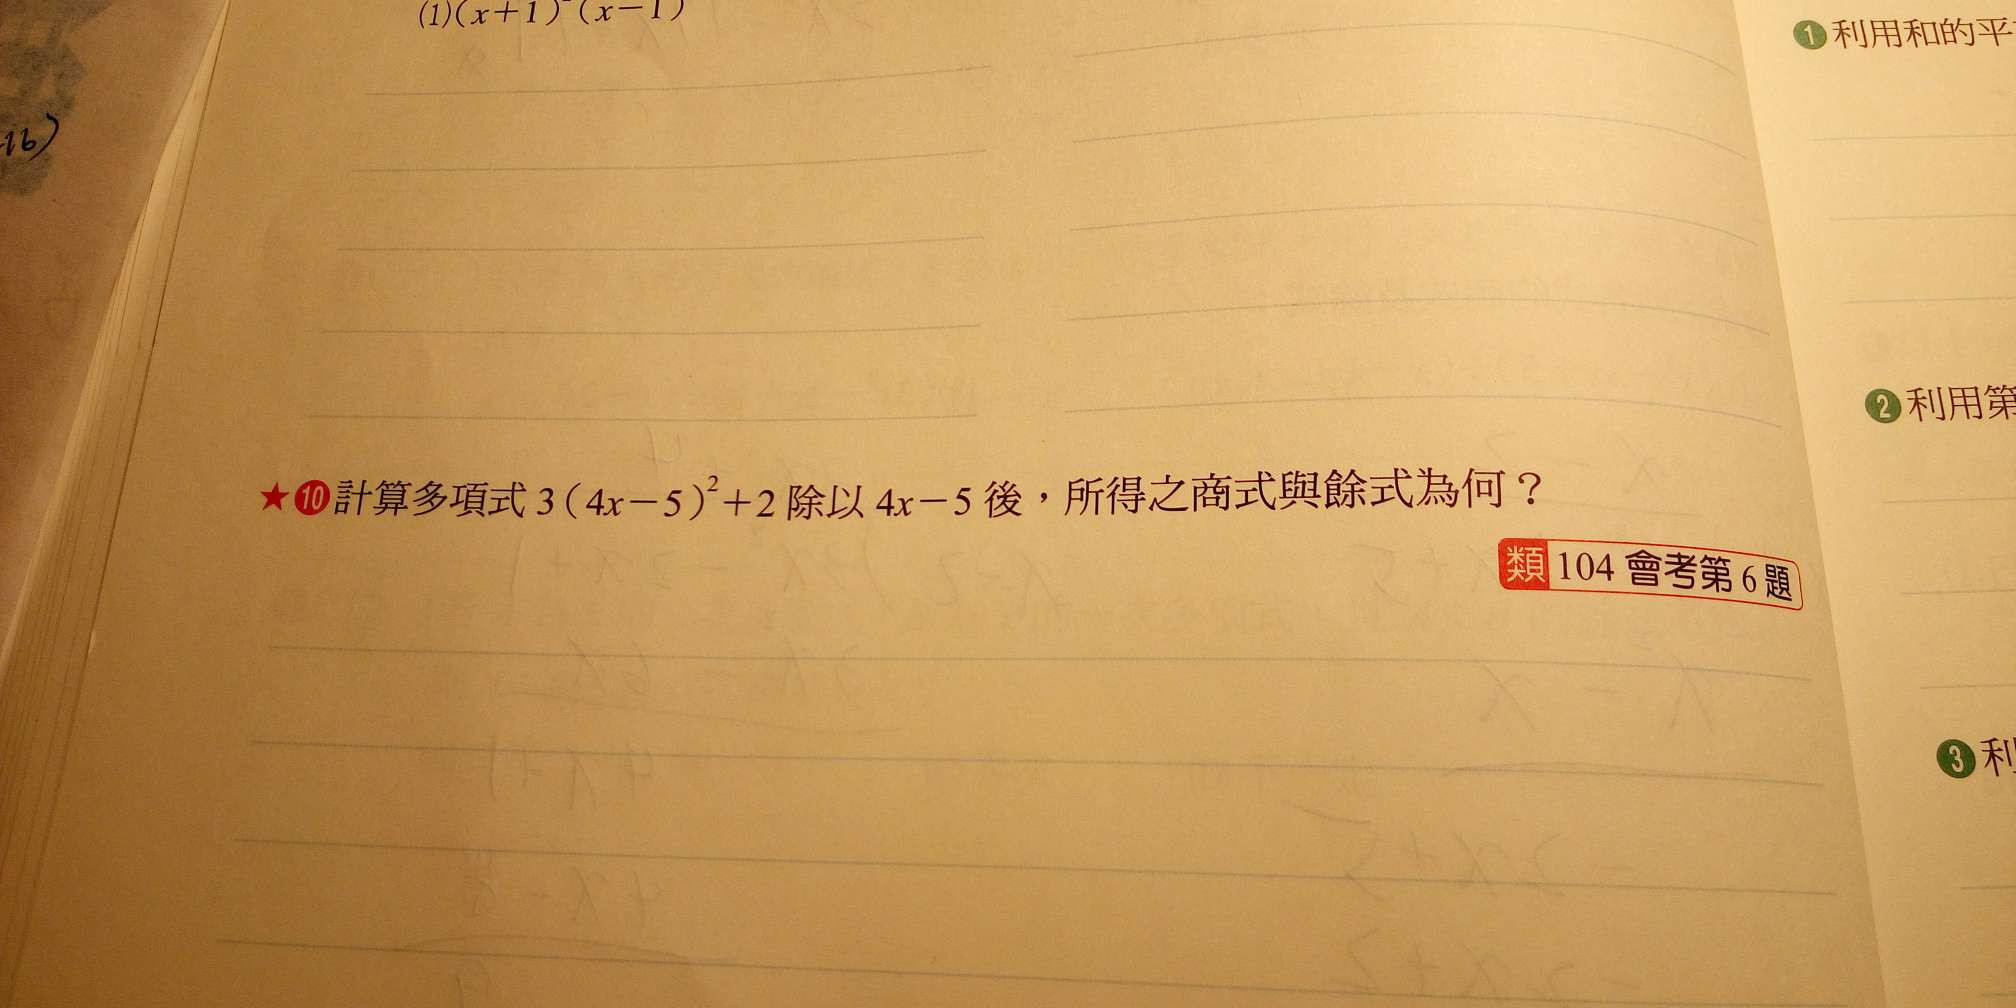 (1)(x+1)²(x−1)
-16)
❶利用和的平
❷利用第
★❿計算多項式 3(4x−5)²+2 除以 4x−5 後，所得之商式與餘式為何？
類 104 會考第 6 題
❸利